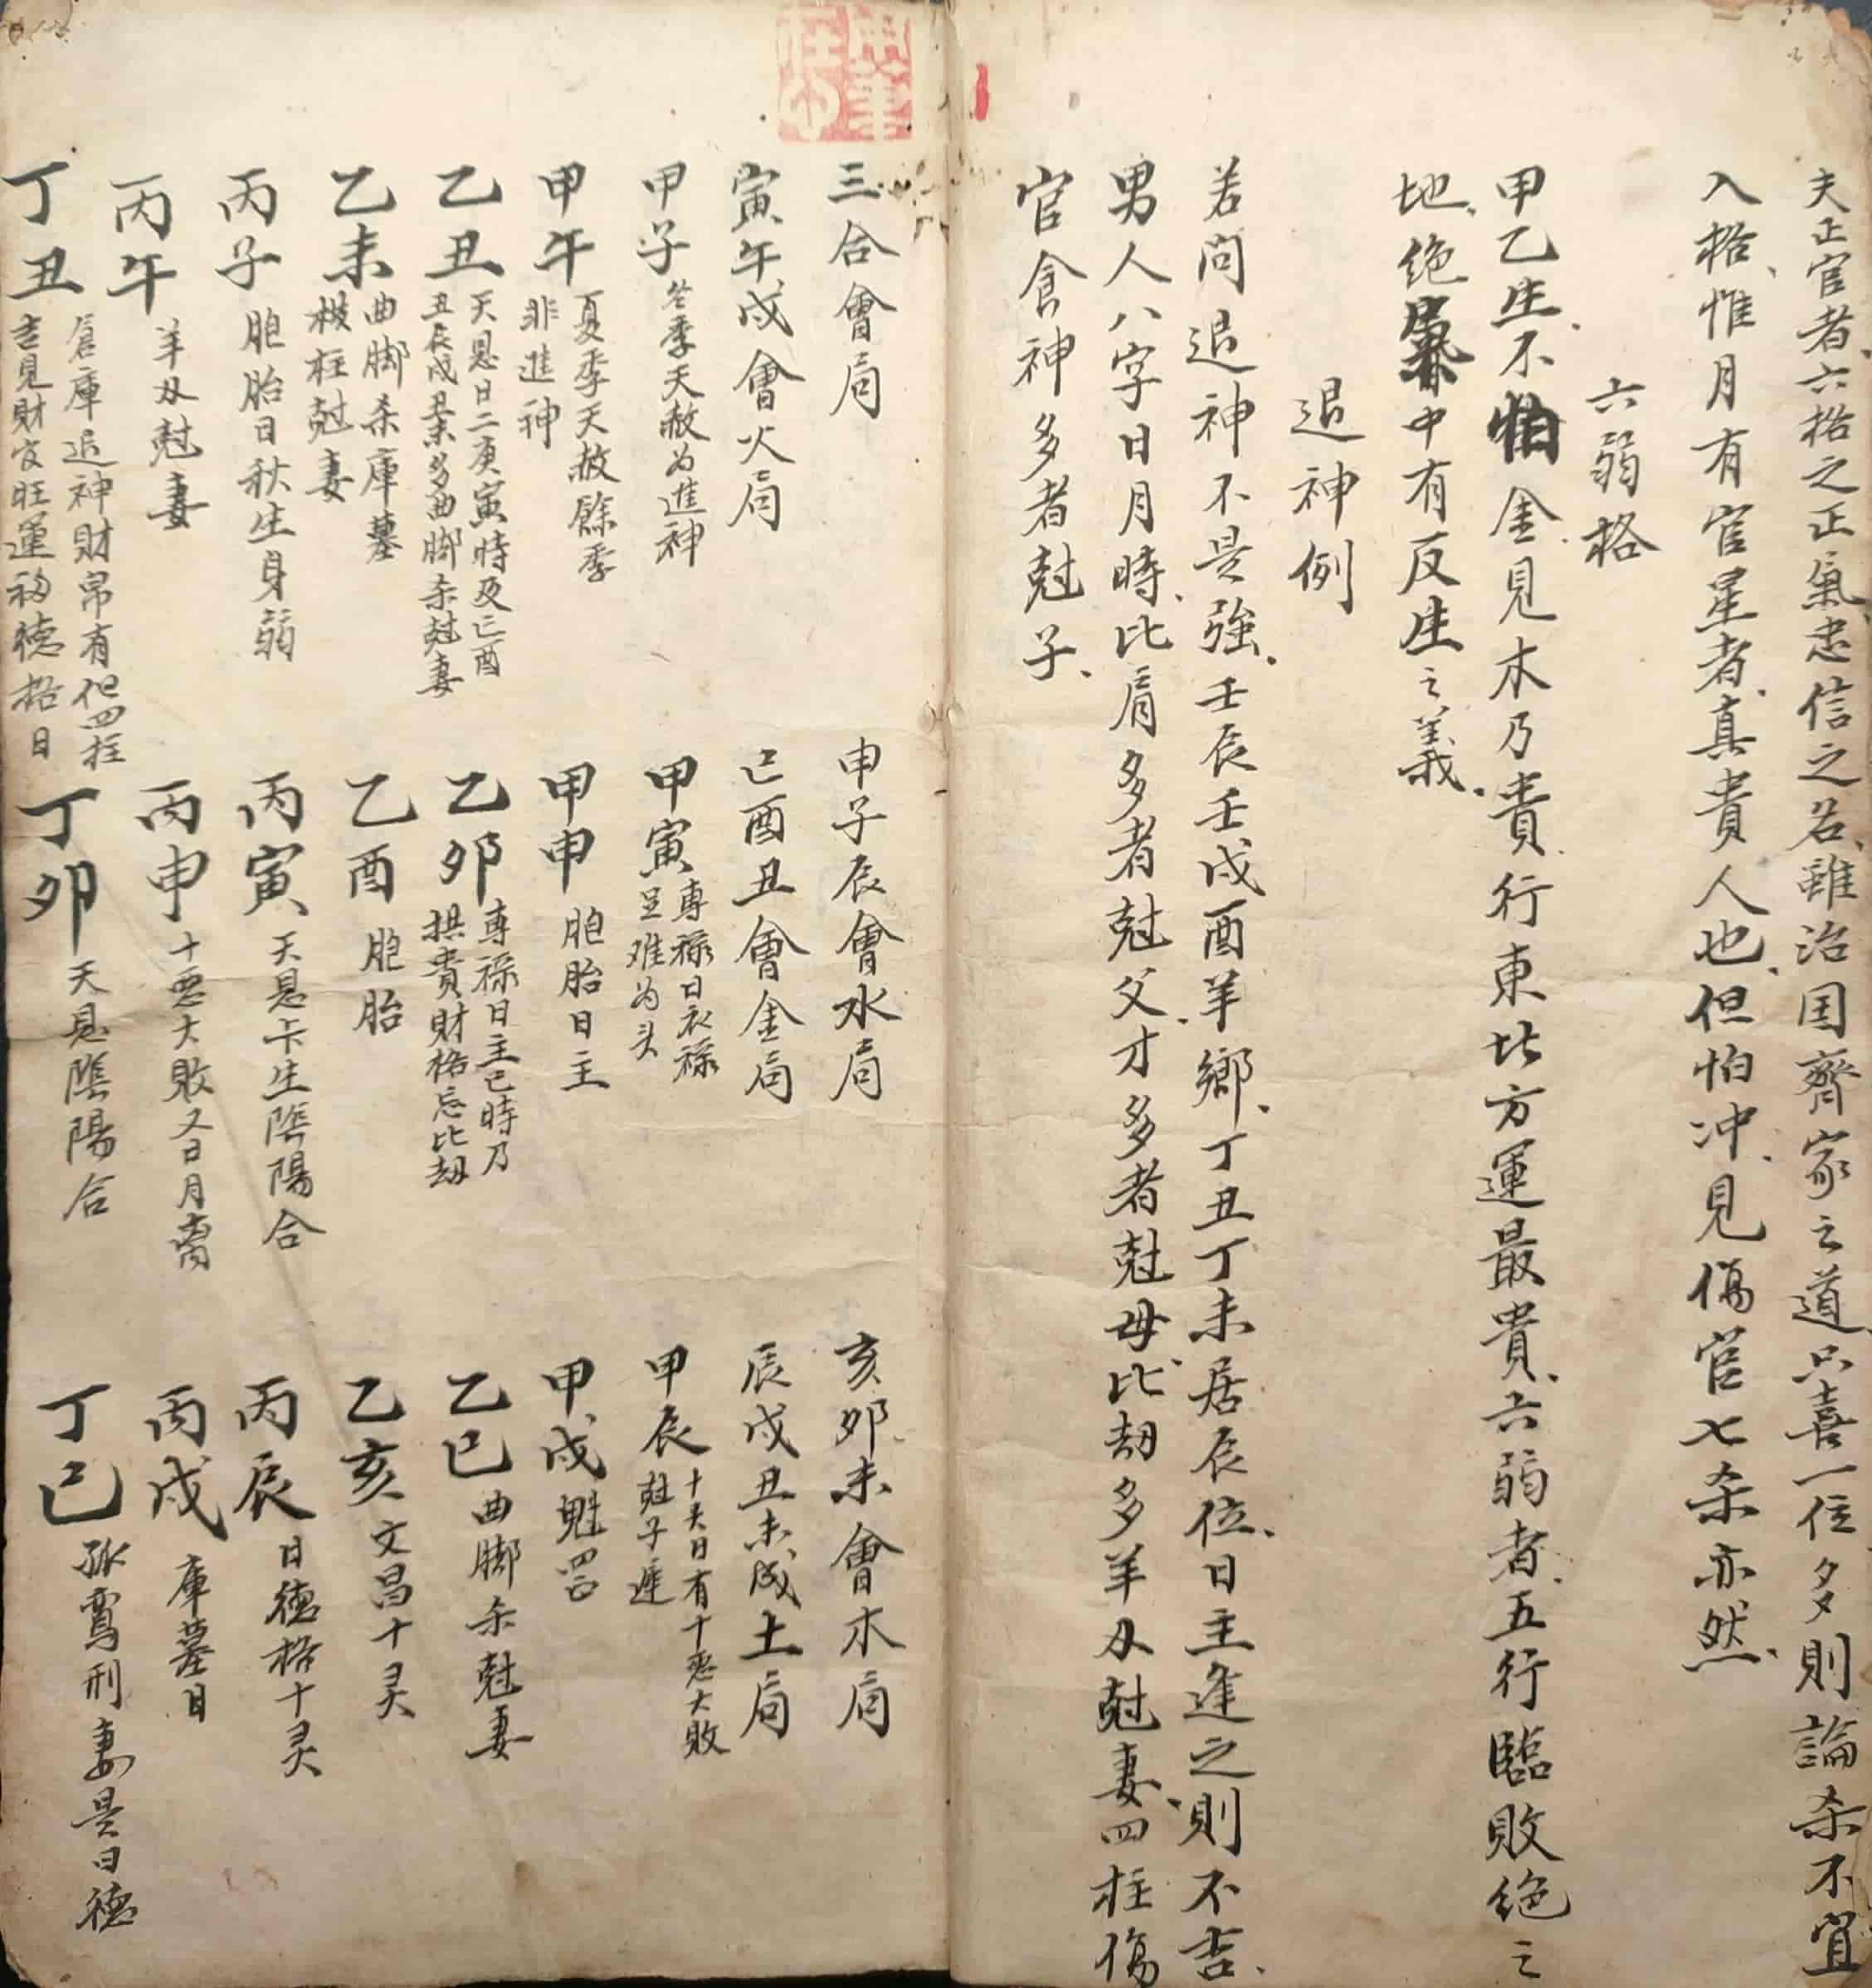 夫正官者六格之正氣忠信之名雖治国齊家之道只喜一位多則論杀不宜
入格惟月有官星者真貴人也但怕冲見傷官七杀亦然
六弱格
甲乙生不怕金見木乃貴行東北方運最貴六弱者五行臨敗絶之
地絶處中有反生之義
退神例
若问退神不是強壬辰壬戌酉羊鄉丁丑丁未居辰位日主逢之則不吉
男人八字日月時比肩多者尅父才多者尅母比劫多羊刃尅妻四柱傷
官食神多者尅子
三合會局
申子辰會水局
亥卯未會木局
寅午戌會火局
巳酉丑會金局
辰戌丑未成土局
甲子 冬季天赦为進神
甲寅 專禄日衣禄
呈难为头
甲辰 十灵日有十悪大敗
尅子遲
甲午 夏季天赦餘季
非進神
甲申 胞胎日主
甲戌 魁罡
乙丑 天恩日二庚寅時及巳酉
丑辰戌未多曲脚杀尅妻
乙卯 專禄日主巳時乃
拱貴財格忌比劫
乙巳 曲脚杀尅妻
乙未 曲脚杀庫墓
截柱尅妻
乙酉 胞胎
乙亥 文昌十灵
丙子 胞胎日秋生身弱
丙寅 天恩长生陰陽合
丙辰 日德格十灵
丙午 羊刃尅妻
丙申 十悪大敗又日月离
丙戌 庫墓日
丁丑 倉庫退神財帛有但四柱
吉見財官旺運福德格日
丁卯 天恩陰陽合
丁巳 孤鸞刑妻是日德